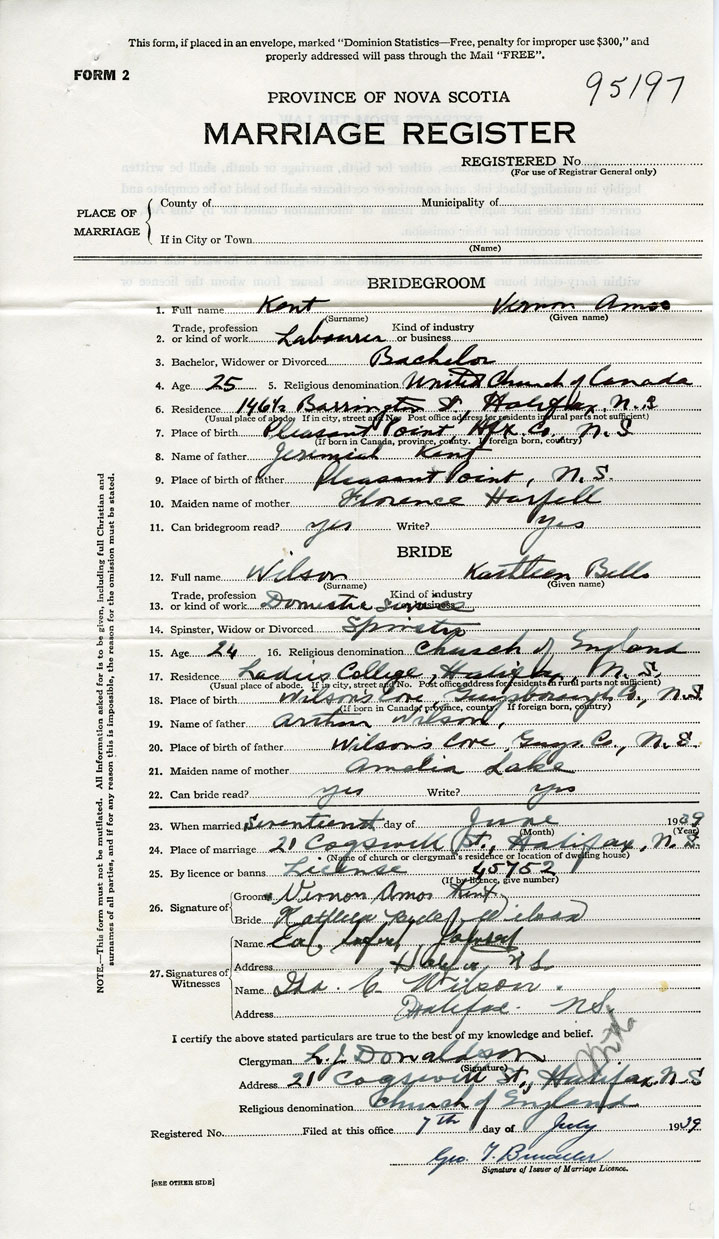 This form, if placed in an envelope, marked "Dominion Statistics—Free, penalty for improper use $300," and
properly addressed will pass through the Mail "FREE".
FORM 2
95197
PROVINCE OF NOVA SCOTIA
MARRIAGE REGISTER
REGISTERED No.
(For use of Registrar General only)
PLACE OF MARRIAGE
County of Municipality of
If in City or Town
(Name)
BRIDEGROOM
1. Full name Kent Vernon Amos
(Surname) (Given name)
Trade, profession Kind of industry
2. or kind of work Labourer or business
3. Bachelor, Widower or Divorced Bachelor
4. Age 25 5. Religious denomination United Church of Canada
6. Residence 146½ Barrington St, Halifax, N.S
(Usual place of abode. If in city, street and No. Post office address for residents in rural parts not sufficient)
7. Place of birth Pleasant Point, Hfx. Co. N.S
(If born in Canada, province, county. If foreign born, country)
8. Name of father Jeremiah Kent
9. Place of birth of father Pleasant Point, N.S.
10. Maiden name of mother Florence
11. Can bridegroom read? yes Write? yes
BRIDE
12. Full name Wilson Kathleen Bells
(Surname) (Given name)
Trade, profession Kind of industry
13. or kind of work Domestic or business
14. Spinster, Widow or Divorced Spinster
15. Age 24 16. Religious denomination Church of England
17. Residence Ladies College, Halifax, N.S.
(Usual place of abode. If in city, street and No. Post office address for residents in rural parts not sufficient)
18. Place of birth Wilson's Cove, Guysborough Co., N.S
(If born in Canada, province, county. If foreign born, country)
19. Name of father Arthur Wilson,
20. Place of birth of father Wilson's Cove, Guys. Co., N.S.
21. Maiden name of mother Amelia Lake
22. Can bride read? yes Write? yes
23. When married Seventeenth day of June 1939
(Month) (Year)
24. Place of marriage 21 Cogswell St., Halifax, N.S.
(Name of church or clergyman's residence or location of dwelling house)
25. By licence or banns License 45752
(If by licence, give number)
26. Signature of
Groom Vernon Amos Kent
Bride Kathleen Wilson
27. Signatures of Witnesses
Name
Address Halifax N.S.
Name C. Wilson.
Address Halifax. N.S.
I certify the above stated particulars are true to the best of my knowledge and belief.
Clergyman L. J. Donaldson
(Signature)
Address 21 Cogswell St., Halifax, N.S
Religious denomination Church of England
Registered No. Filed at this office 7th day of July 1939
Geo. T.
Signature of Issuer of Marriage Licence.
[SEE OTHER SIDE]
NOTE.—This form must not be mutilated. All information asked for is to be given, including full Christian and
surnames of all parties, and if for any reason this is impossible, the reason for the omission must be stated.